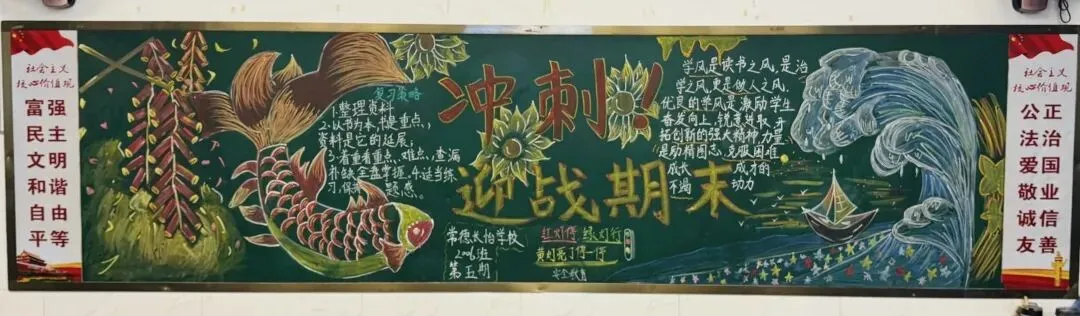 社会主义
核心价值观
富强
民主
文明
和谐
自由
平等
复习策略
1.整理资料
2.以书为本,书是重点,
资料是它的延展;
3.看重看重点、难点、查漏
补缺,全盘掌握。4.适当练
习,保持题感。
冲刺!
迎战期末
常德长怡学校
2006班
第五期
红灯停 绿灯行
黄灯亮了停一停
安全教育
学风是读书之风,是治
学之风,更是做人之风,
优良的学风是激励学生
奋发向上,锐意进取,开
拓创新的强大精神力量
是助精图志、克服困难
成长 成才的
不竭 动力
社会主义
核心价值观
公正
法治
爱国
敬业
诚信
友善